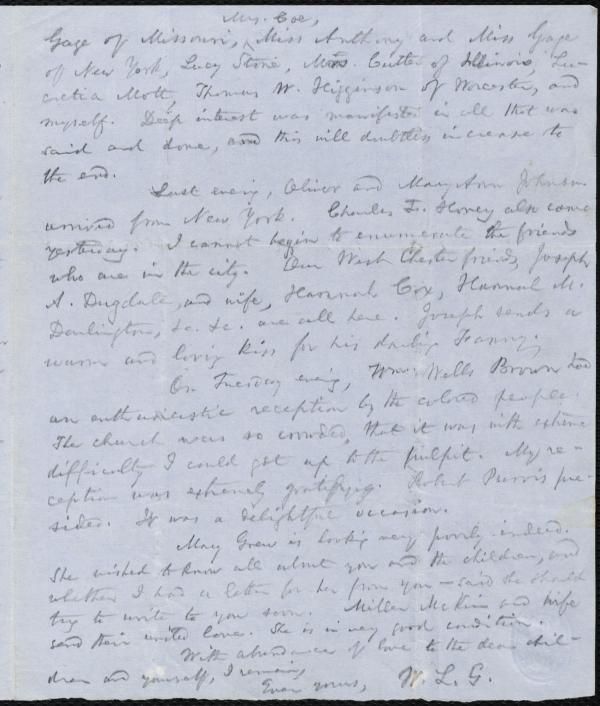 Mrs. Coe,
Gage of Missouri, ^ Miss Anthony and Miss Gage
of New York, Lucy Stone, Mrs. Cutler of Illinois, Lu-
cretia Mott, Thomas W. Higginson of Worcester, and
myself. Deep interest was manifested in all that was
said and done, and this will doubtless increase to
the end.
Last evening, Oliver and Mary Ann Johnson
arrived from New York. Charles F. Hovey also came
yesterday. I cannot begin to enumerate the friends
who are in the city. Our West Chester friends, Joseph
A. Dugdale, and wife, Hannah Cox, Hannah M.
Darlington, &c. &c. are all here. Joseph sends a
warm and loving kiss for his darling Fanny.
On Tuesday evening, Wm. Wells Brown had
an enthusiastic reception by the colored people.
The church was so crowded, that it was with extreme
difficulty I could get up to the pulpit. My re-
ception was extremely gratifying. Robert Purvis pre-
sided. It was a delightful occasion.
Mary Grew is looking very poorly indeed.
She wished to know all about you and the children, and
whether I had a letter for her from you — said she should
try to write to you soon. Miller McKim and wife
send their united love. She is in very good condition.
With abundance of love to the dear chil-
dren and yourself, I remain,
Ever yours, W. L. G.